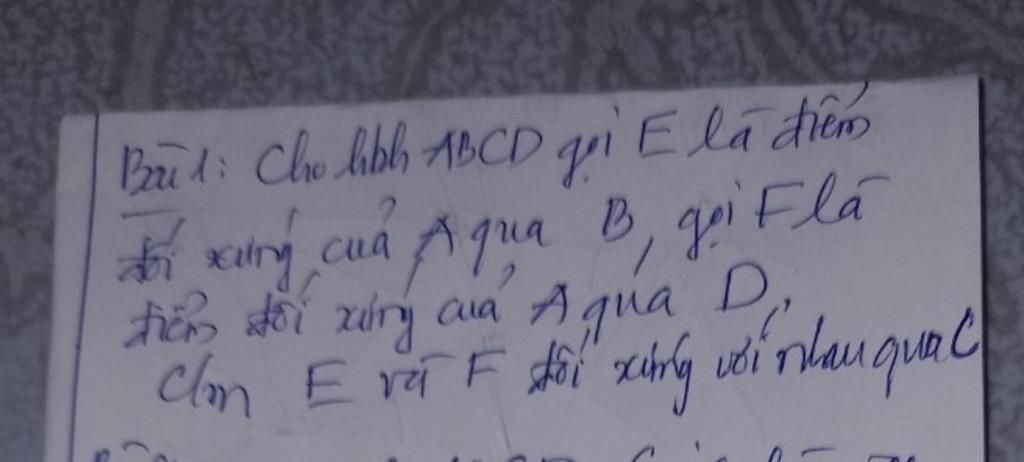 Bài 1: Cho hbh ABCD gọi E là điểm
đối xứng của A qua B, gọi F là
điểm đối xứng của A qua D,
Cm E và F đối xứng với nhau qua C